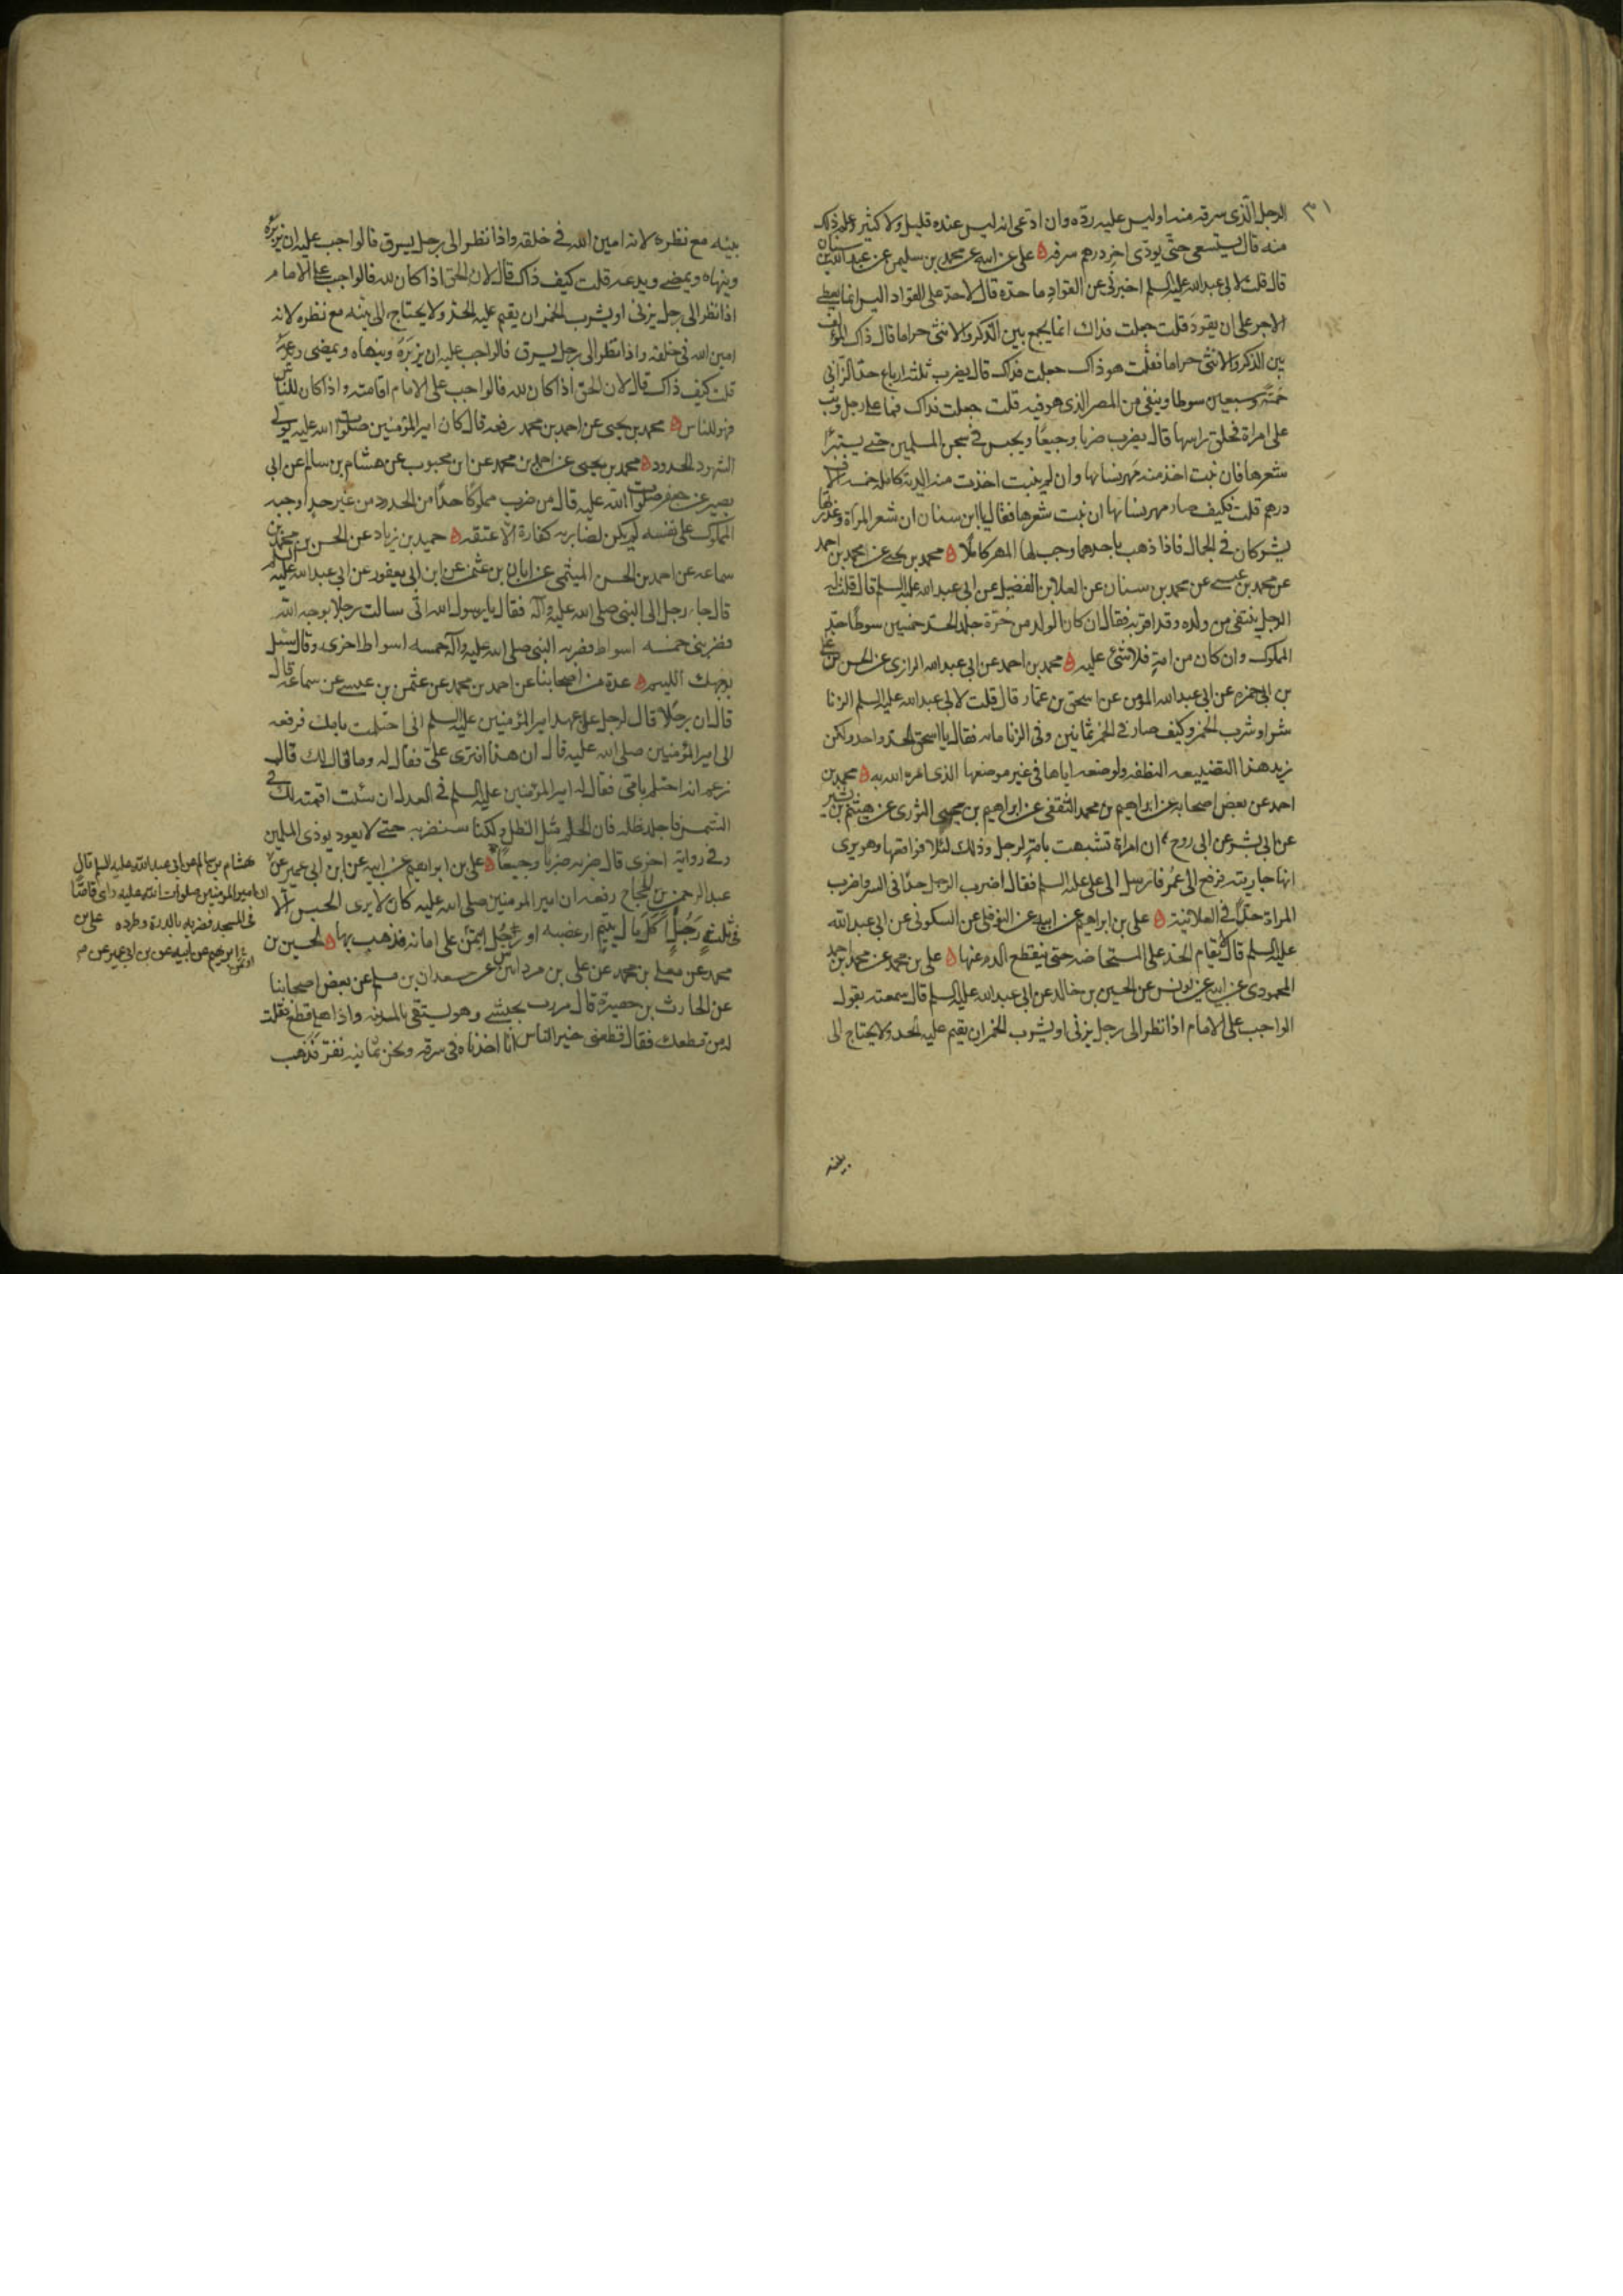 ٣١
الرجل الّذى سرقه منه او ليس عليه ردّه وان ادّعى انه ليس عنده قليل ولا كثير وعلم ذلك
منه قال يستسعى حتّى يودّى اخر درهم سرقه ه على عن ابيه عن محمد بن سليمن عن عبد الله بن سنان
قال قلت لابى عبد الله عليه السلم اخبرنى عن القوّاد ما حدّه قال لا حدّ على القوّاد اليس انما يعطى
الاجر على ان يقود قلت جعلت فداك انما يجمع بين الذكر والانثى حراما قال ذاك المؤلّف
بين الذكر والانثى حراما فقلت هو ذاك جعلت فداك قال يضرب ثلثه ارباع حدّ الزانى
خمسة وسبعين سوطا وينفى من المصر الذى هو فيه قلت جعلت فداك فما على رجل وثب
على امراة فحلق راسها قال يضرب ضربا وجيعًا ويحبس فى سجن المسلمين حتى يستبرأ
شعرها فان نبت اخذ منه مهر نسائها وان لم ينبت اخذت منه الدية كاملة خمسة الاف
درهم قلت فكيف صار مهر نسائها ان نبت شعرها فقال يا ابن سنان ان شعر المراة وعذرتها
يشتركان فى الجمال فاذا ذهب باحدهما وجب لها المهر كاملًا ه محمد بن يحيى عن محمد بن احمد
عن محمد بن عيسى عن محمد بن سنان عن العلا بن الفضيل عن ابى عبد الله عليه السلم قال قلت له
الرجل ينتفى من ولده وقد اقرّ به فقال ان كان الولد من حُرّة جلد الحدّ خمسين سوطًا حدّ
المملوك وان كان من امةٍ فلا شئ عليه ه محمد بن احمد عن ابى عبد الله الرازى عن الحسن بن على
بن ابى حمزه عن ابى عبد الله المؤمن عن اسحق بن عمّار قال قلت لابى عبد الله عليه السلم الزنا
شر او شرب الخمر وكيف صار فى الخمر ثمانين وفى الزنا مائه فقال يا اسحق الحدّ واحد ولكن
زيد هذا لتضييعه النطفه ولوضعه اياها فى غير موضعها الذى امره الله به ه محمد بن
احمد عن بعض اصحابه عن ابراهيم بن محمد الثقفى عن ابراهيم بن يحيى الثورى عن هيثم بن بشير
عن ابى بشر عن ابى روح ان امراة تشبهت بامةٍ لرجل وذلك ليلا فواقعها وهو يرى
انها جاريته فرفع الى عُمر فارسل الى على عليه السلم فقال اضرب الرجل حدًّا فى السر واضرب
المراة حدًّا فى العلانية ه على بن ابراهيم عن ابيه عن النوفلى عن السكونى عن ابى عبد الله
عليه السلم قال لا يُقام الحد على المستحاضه حتى ينقطع الدم عنها ه على بن محمد عن محمد بن احمد
المحمودى عن ابيه عن يونس عن الحسين بن خالد عن ابى عبد الله عليه السلم قال سمعته يقول
الواجب على الامام اذا نظر الى رجل يزنى او يشرب الخمر ان يقيم عليه الحد ولا يحتاج الى
بيّنه
بينه مع نظره لانه امين الله فى خلقه واذا نظر الى رجل يسرق فالواجب عليه ان يزبَره
وينهاه ويمضى ويدعه قلت كيف ذاك قال لان الحق اذا كان لله فالواجب على الامام
اذا نظر الى رجل يزنى او يشرب الخمر ان يقيم عليه الحدّ ولا يحتاج الى بيّنه مع نظره لانه
امين الله فى خلقه واذا نظر الى رجل يسرق فالواجب عليه ان يزبَرَهُ وينهاه ويمضى ويدعه
قلت كيف ذاك قال لان الحق اذا كان لله فالواجب على الامام اقامته واذا كان للناس
فهو للناس ه محمد بن يحيى عن احمد بن محمد رفعه قال كان امير المؤمنين صلوات الله عليه يولّى
الشهود الحدود ه محمد بن يحيى عن احمد بن محمد عن ابن محبوب عن هشام بن سالم عن ابى
بصير عن جعفر صلوات الله عليه قال من ضرب مملوكًا حدًّا من الحدود من غير حدٍ اوجبه
المملوك على نفسه لم يكن لضاربه كفارة الّا عتقه ه حميد بن زياد عن الحسن بن محمد بن
سماعه عن احمد بن الحسن الميثمى عن ابان بن عثمن عن ابن ابى يعفور عن ابى عبد الله عليه السلم
قال جاء رجل الى النبى صلى الله عليه وآله فقال يا رسول الله انّى سالت رجلا بوجه الله
فضربنى خمسه اسواط فضربه النبى صلى الله عليه وآله خمسه اسواط اخرى وقال سل
بوجهك اللئيم ه عدة من اصحابنا عن احمد بن محمد عن عثمن بن عيسى عن سماعة قال
قال ان رجُلا قال لرجل على عهد امير المؤمنين عليه السلم انى احتلمت بامك فرفعه
الى امير المؤمنين صلى الله عليه قال ان هذا افترى علىّ فقال له وما قال لك قال
زعم انه احتلم بامّى فقال له امير المؤمنين عليه السلم فى العدل ان شئت اقمته لك فى
الشمس فاجلد ظلّه فان الحلم مثل الظل ولكنّا سنضربه حتى لا يعود يوذى المسلمين
وفى رواية اخرى قال ضربه ضربًا وجيعًا ه على بن ابراهيم عن ابيه عن ابن ابى عمير عن
عبد الرحمن بن الحجاج رفعه ان امير المومنين صلى الله عليه كان لا يرى الحبس الّا
فى ثلثٍ رَجُلٌ اكَلَ مال يتيمٍ او غصبه او رجُل ايتُمن على امانه فذهب بها ه الحسين بن
محمد عن معلى بن محمد عن على بن مرداس عن سعدان بن مسلم عن بعض اصحابنا
عن الحارث بن حصيرة قال مررت بحبشى وهو يستقى بالمدينه واذا هو اقطع فقلت
له من قطعك فقال قطعنى خير الناس انّا اخذنا فى سرقه ونحن ثمانيه نفر فذهب
هشام بن سالم عن ابى عبد الله عليه السلم قال
ان امير المومنين صلوات الله عليه راى قاصًّا
فى المسجد فضربه بالدرة وطرده على بن
ابراهيم عن ابيه عن بن ابى عمير عن